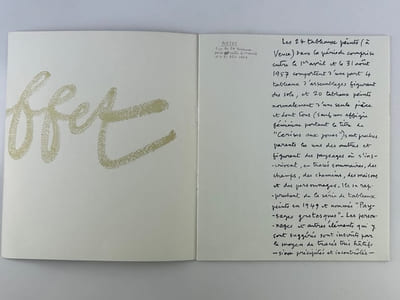 ffet
NOTES
Les 24 tableaux peints (à
Vence) dans la période comprise
entre le 1er avril et le 31 août
1957 comportent d'une part 4
tableaux d'assemblages figurant
des sols, et 20 tableaux peints
normalement d'une seule pièce
et dont tous (sauf une effigie
féminine portant le titre de
"Cerises aux joues") sont proches
parents les uns des autres et
figurant des paysages où s'ins-
crivent, en tracés sommaires, des
champs, des chemins, des maisons
et des personnages. Ils se rap-
prochent de la série de tableaux
peints en 1949 et nommée "Pay-
sages grotesques". Les person-
nages et autres éléments qui y
sont suggérés sont inscrits par
le moyen de tracés très hâtifs
— sinon précipités et incontrôlés —